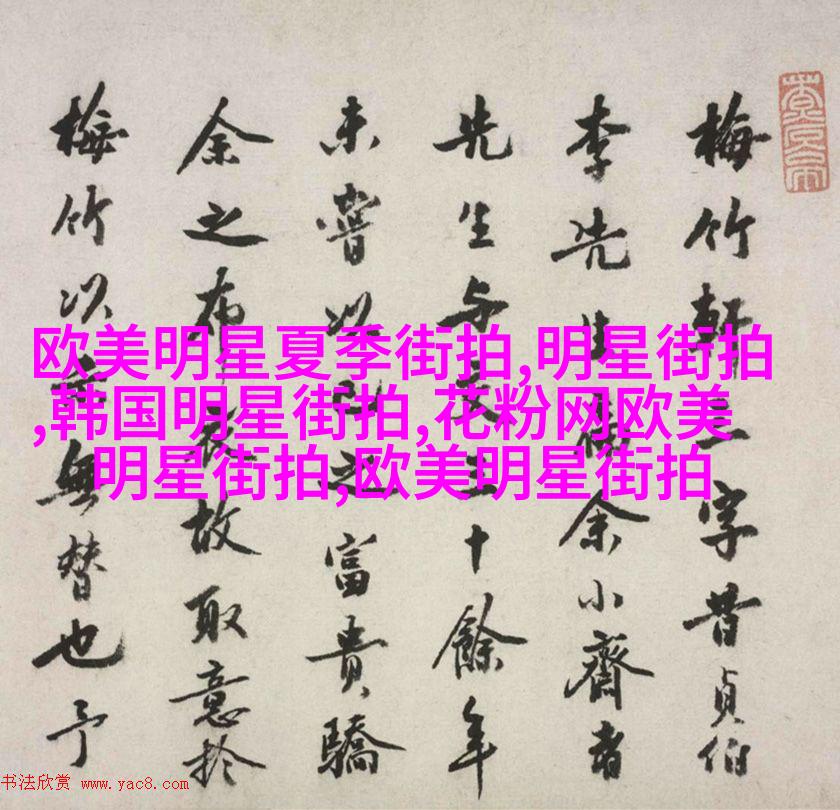 梅竹軒三字昔貞伯
李先生余小齋者
先生与交三十餘年
未嘗以己之富貴驕
余之布衣故取意於
梅竹以無替也予
欧美明星夏季街拍,明星街拍
,韩国明星街拍,花粉网欧美
明星街拍,欧美明星街拍
书法欣赏 www.yac8.com